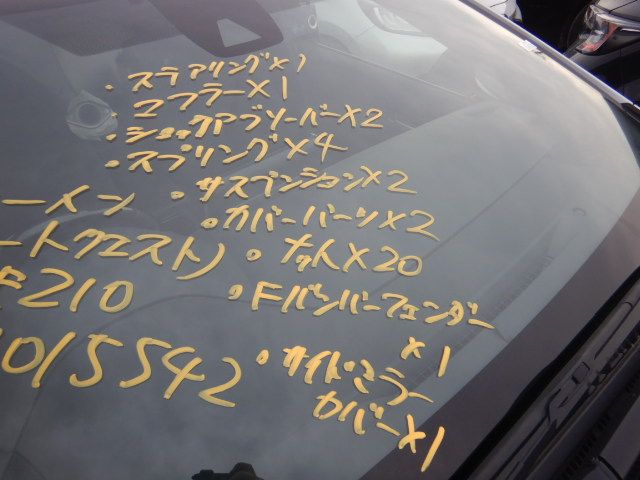 ・ステアリング×1
・マフラー×1
・ショックアブソーバー×2
・スプリング×4
・サスペンション×2
ーメン
・カバーパーツ×2
ートクエスト)
・ナット×20
210
・Fバンパーフェンダー
×1
015542
・サイドミラー
カバー×1